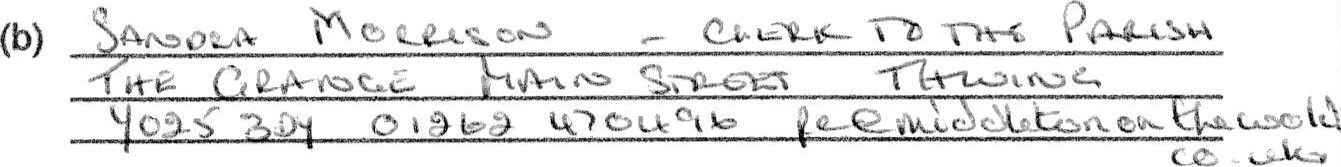 (b) SANDRA MORRISON - CLERK TO THE PARISH
THE GRANGE MAIN STREET THWING
YO25 3DY 01262 470496 pc@middletononthewold
co.uk